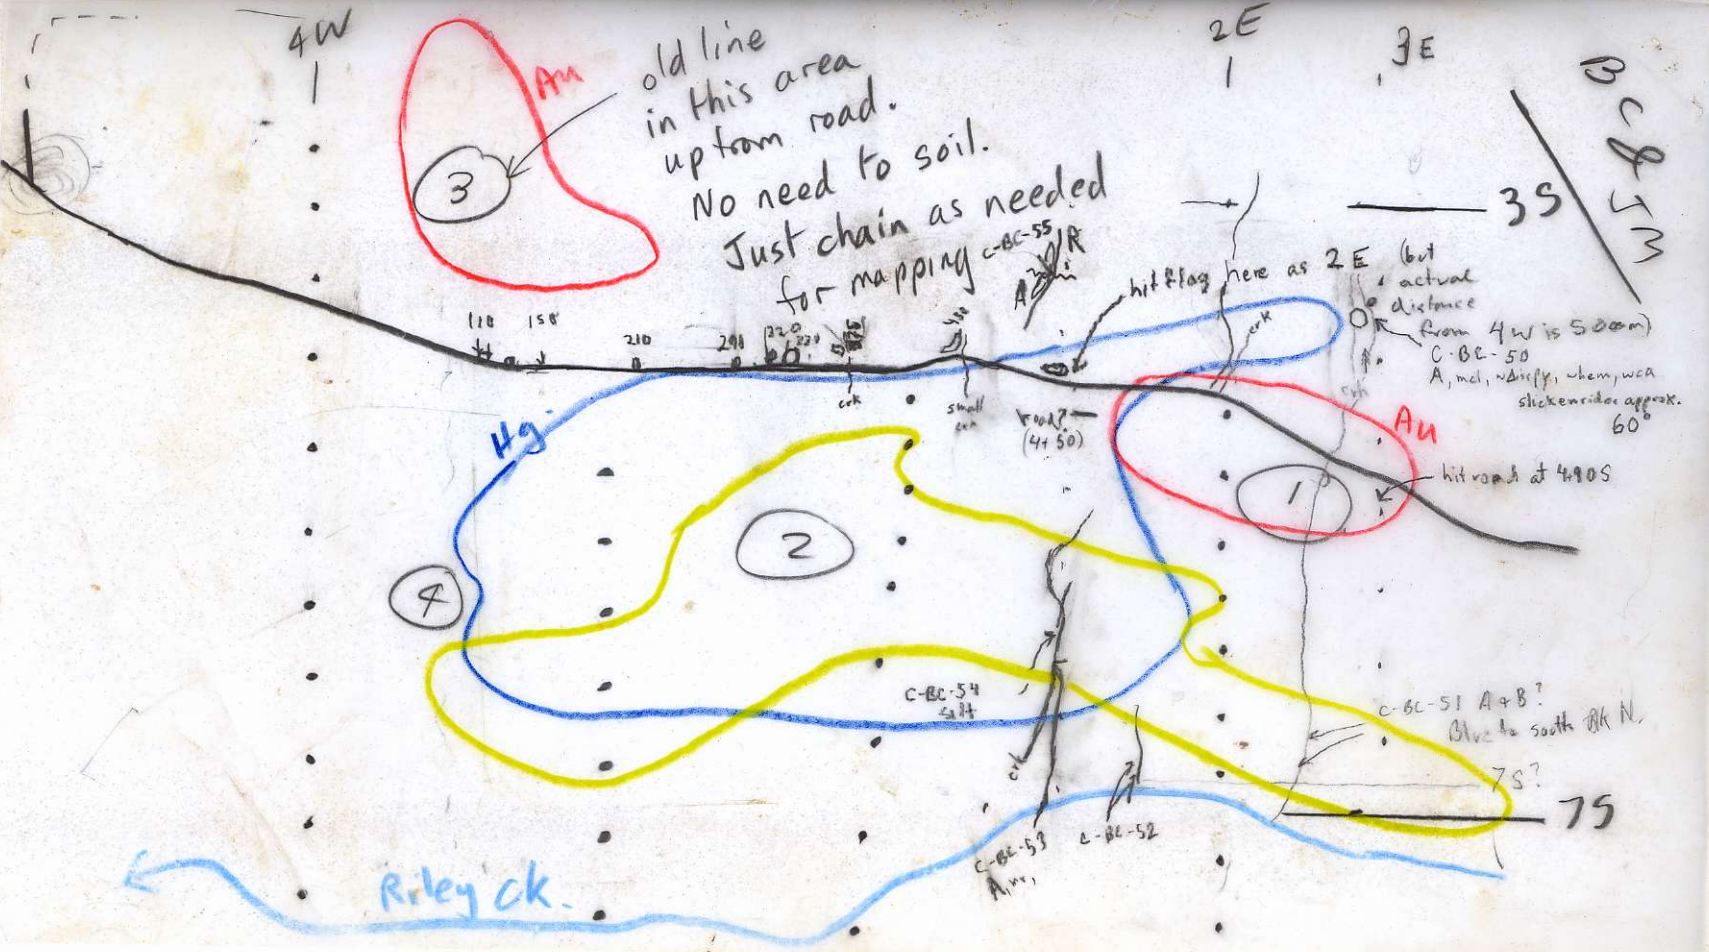 4W
2E
3E
BC & JM
Au
old line
in this area
up from road.
No need to soil.
Just chain as needed
for mapping
3
3S
C-BC-55
A
R
hit flag here as 2E (but
actual
distance
from 4W is 500m)
C-BC-50
slickensides approx.
60°
110
150
210
220
crk
small
crk
crk
crk
road?
(4+50)
Hg
Au
1
hit road at 490S
2
4
C-BC-54
silt
C-BC-51 A & B?
7S?
7S
crk
C-BC-53
C-BC-52
Riley ck.